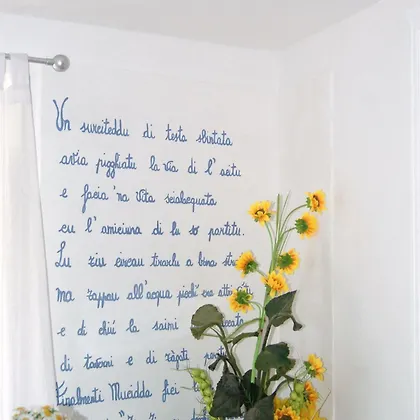 Un surciteddu di testa sbintata
avia pigghiatu la via di l' acitu
e facia 'na vita sciabequata
cu l' amiciuna di lu so partitu.
Lu ziu circau tiraulu a bona
ma zappau all'acqua picchì era
e di chiù la saimi
di taverni e di zàgati
Finalmenti Mucidda fici